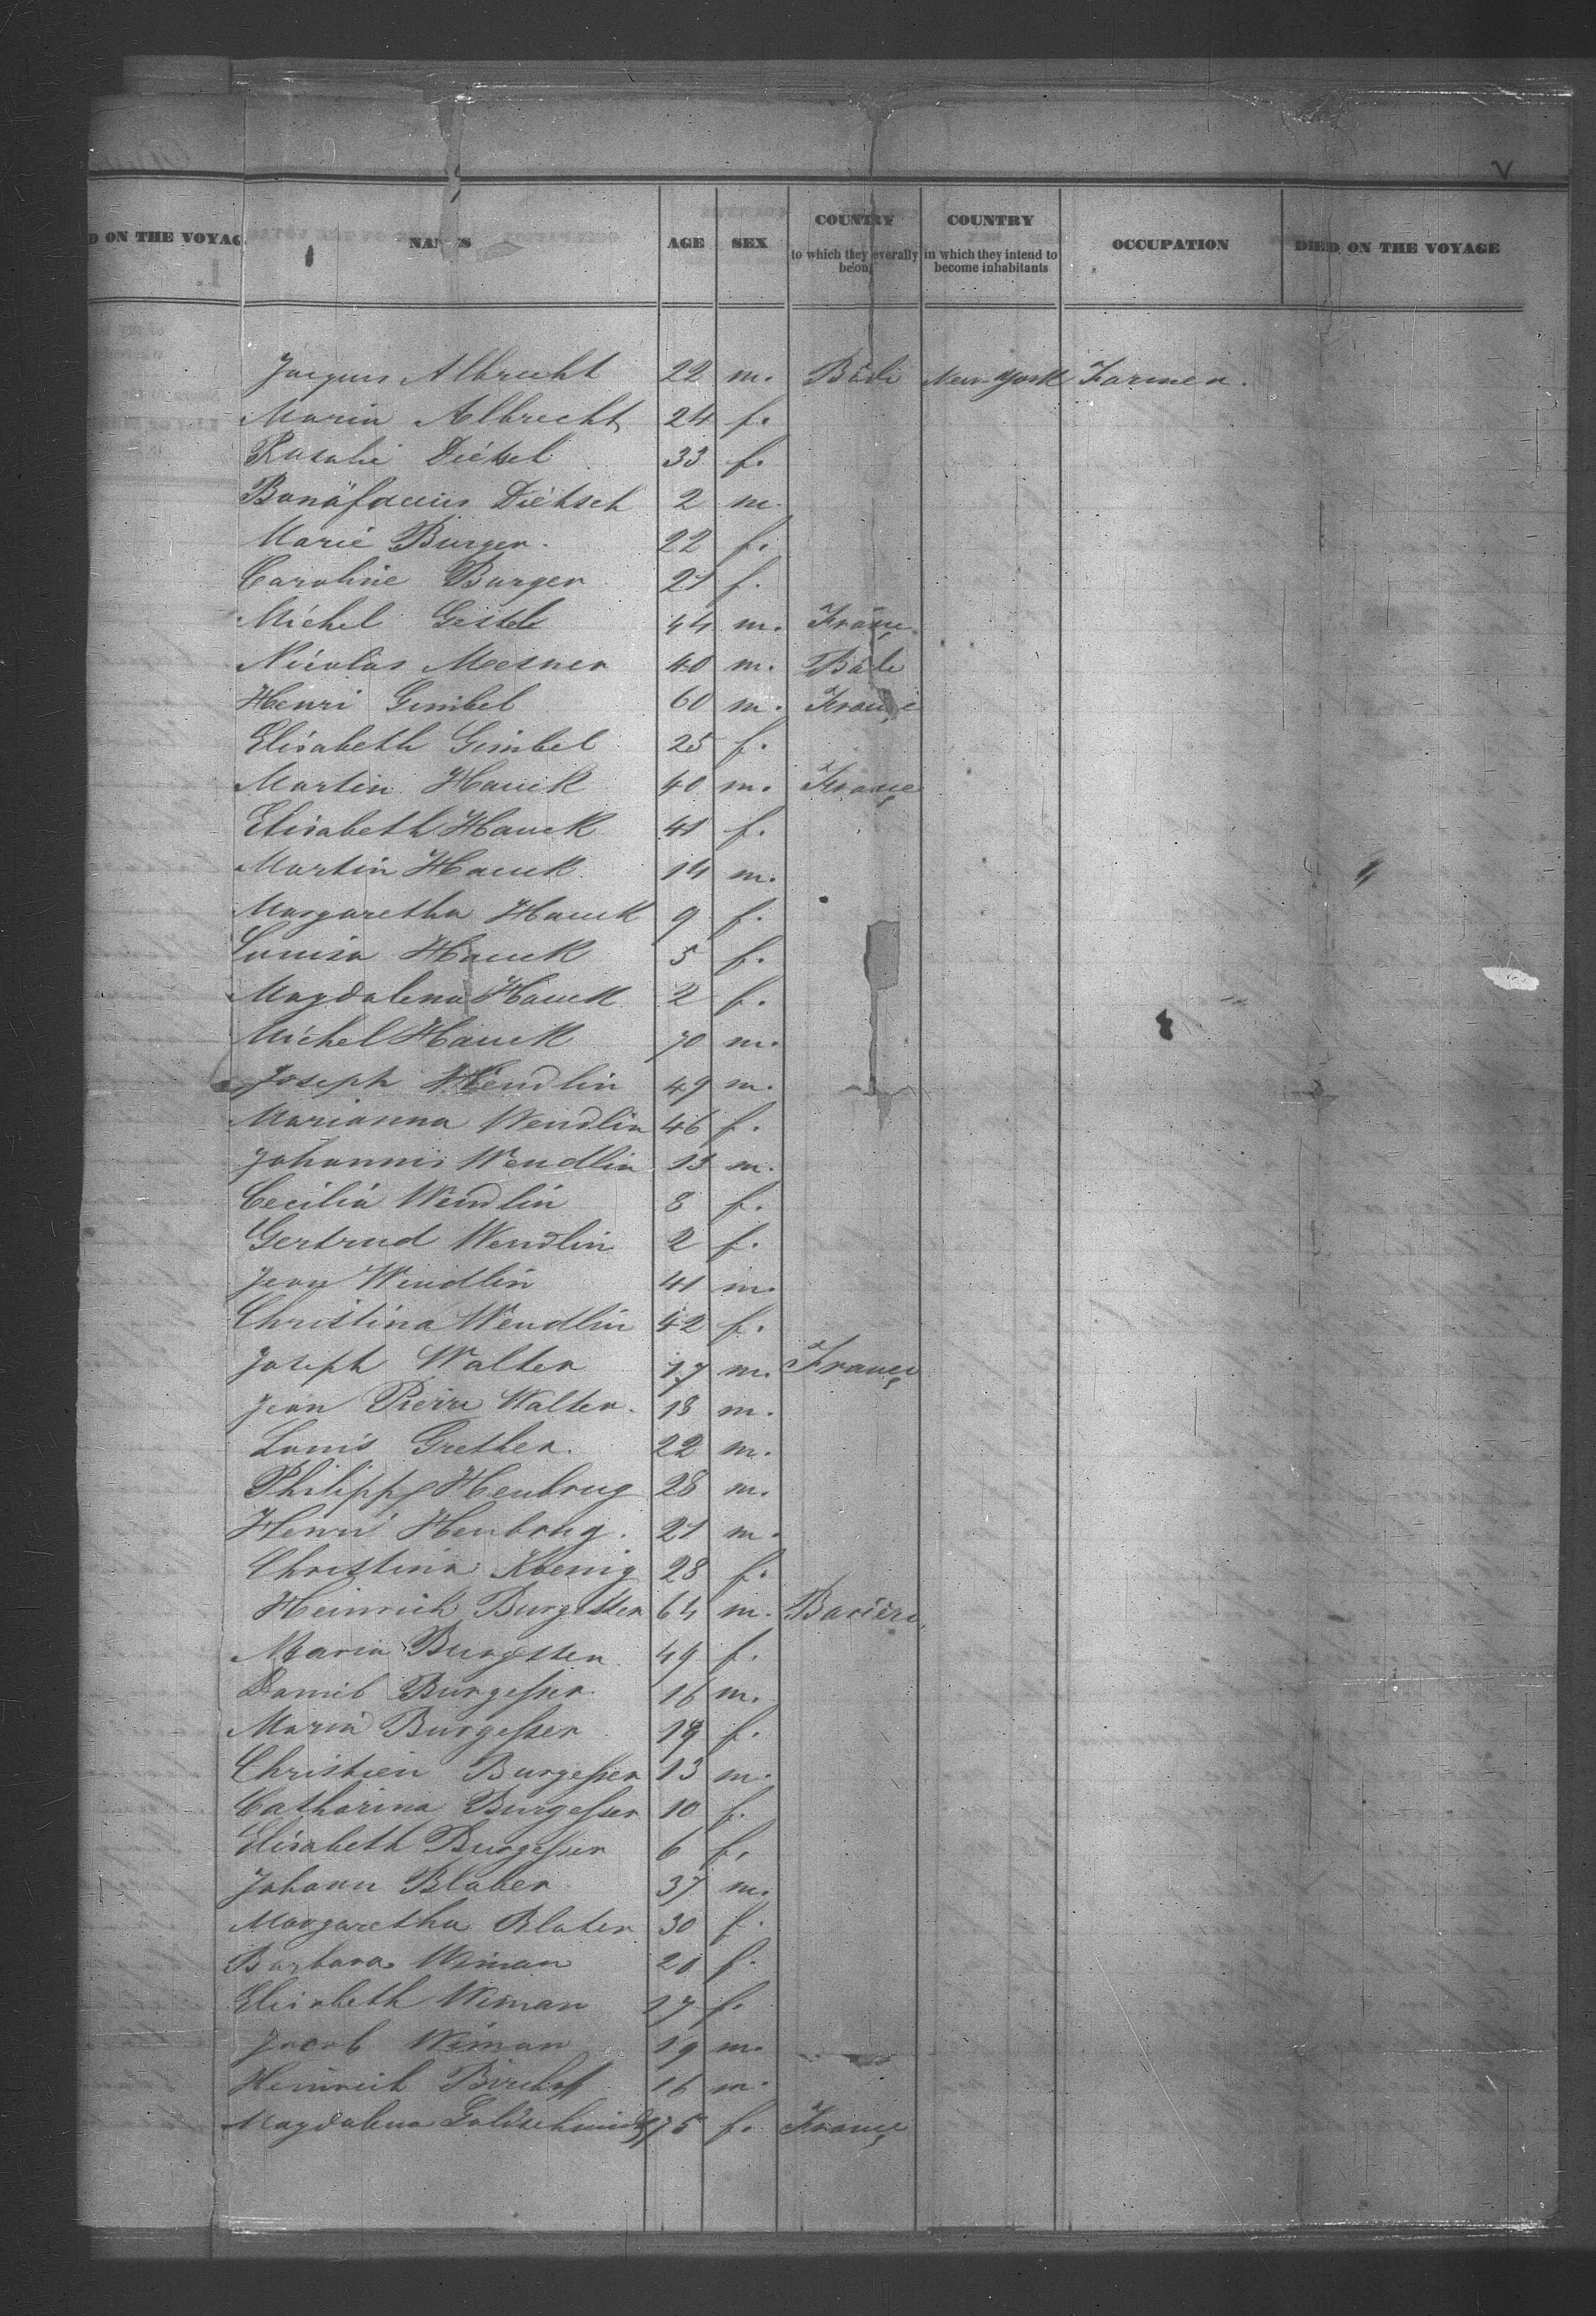 D ON THE VOYAG
NAMES AGE SEX COUNTRY to which they severally belong COUNTRY in which they intend to become inhabitants OCCUPATION DIED ON THE VOYAGE
Jacques Albrecht 22 m. Bade New York Farmer.
Maria Albrecht 24 f.
Rosalie 33 f.
Bonifacius Dietsch 2 m.
Marie Burger. 22 f.
Caroline Burger 21 f.
Michel 44 m. France
Nicolas Mesner 40 m. Bade
Henri Gimbel 60 m. France
Elisabeth Gimbel 25 f.
Martin Hauck 40 m. France
Elisabeth Hauck 41 f.
Martin Hauck 14 m.
Margaretha Hauck 9 f.
Louisa Hauck 5 f.
Magdalena Hauck 2 f.
Michel Hauck 70 m.
Joseph Wendlin 49 m.
Marianna Wendlin 46 f.
Johannes Wendlin 13 m.
Cecilia Wendlin 8 f.
Gertrud Wendlin 2 f.
Jean Wendlin 41 m.
Christina Wendlin 42 f.
Joseph Walter 17 m. France
Jean Pierre Walter. 18 m.
Louis Grether. 22 m.
Philipp Heubrug 28 m.
Henri Heubrug. 21 m.
Christina Koenig 28 f.
Heinrich Burgesser 64 m. Baviere
Maria Burgesser 49 f.
Daniel Burgesser 16 m.
Maria Burgesser f.
Christien Burgesser 13 m.
Catharina Burgesser 10 f.
Elisabeth Burgesser 6 f.
Johann Blater 37 m.
Margaretha Blater 30 f.
Barbara Wiman 20 f.
Elisabeth Wiman 17 f.
Jacob Wiman 19 m.
Heinrich 16 m.
Magdalena Goldschmidt 75 f. France